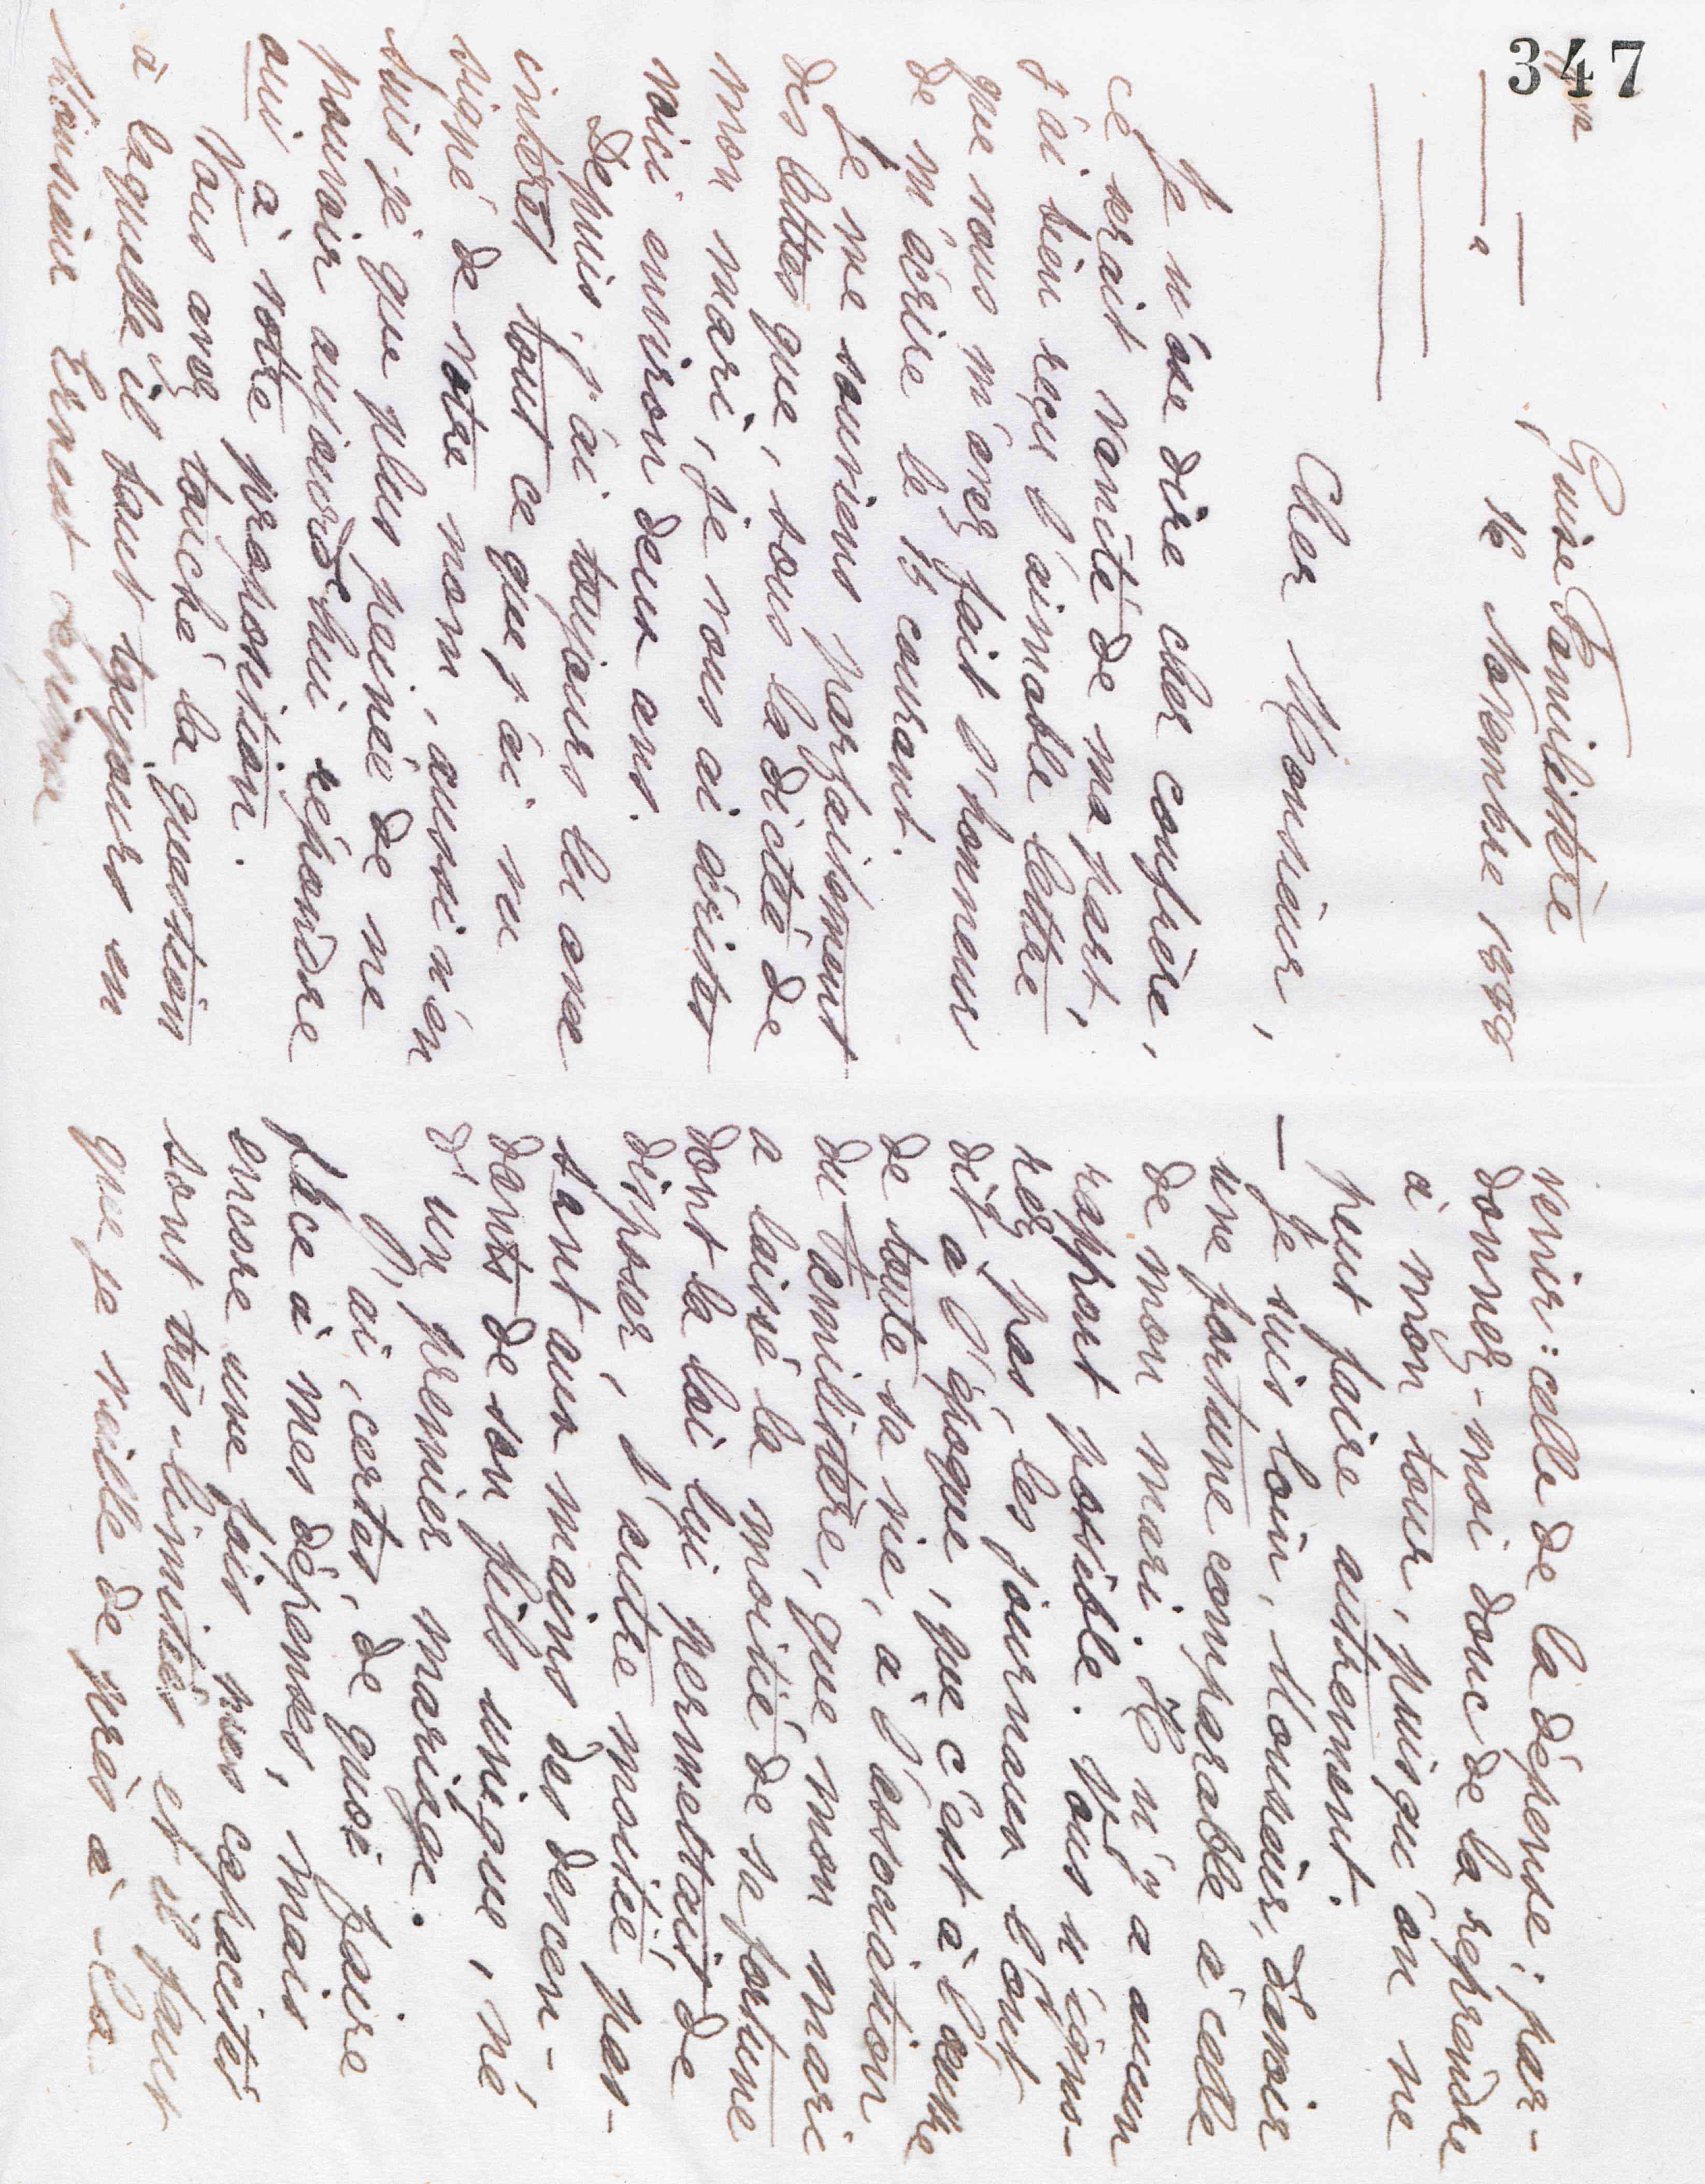 347
Guise Familistère
16 Novembre 1888
Cher Monsieur,
Je n'ose dire cher confrère,
ce serait vanité de ma part,
j'ai bien reçu l'aimable lettre
que vous m'avez fait l'honneur
de m'écrire le 15 courant.
Je me souviens parfaitement
des lettres que, sous la dictée de
mon mari, je vous ai écrites
voici environ deux ans.
Depuis, j'ai toujours lu avec
intérêt tout ce que j'ai vu
signé de votre nom, aussi n'en
suis-je que plus peinée de ne
pouvoir aujourd'hui répondre
oui à votre proposition.
Vous avez touché la question
à laquelle il faut toujours en
Monsieur Ernest
venir : celle de la dépense ; par-
donnez-moi donc de la reprendre
à mon tour, puisqu'on ne
peut faire autrement.
— Je suis loin, Monsieur, d'avoir
une fortune comparable à celle
de mon mari. Il n'y a aucun
rapport possible. Vous n'igno-
rez pas, les journaux l'ont
dit à l'époque, que c'est à l'œuvre
de toute sa vie, à l'association
du Familistère, que mon mari
a laissé la moitié de sa fortune
dont la loi lui permettait de
disposer, l'autre moitié pas-
sant aux mains des descen-
dants de son fils unique, né
d'un premier mariage.
J'ai, certes, de quoi faire
face à mes dépenses, mais
encore une fois mes capacités
sont très-limitées et il faut
que je veille de près à cela